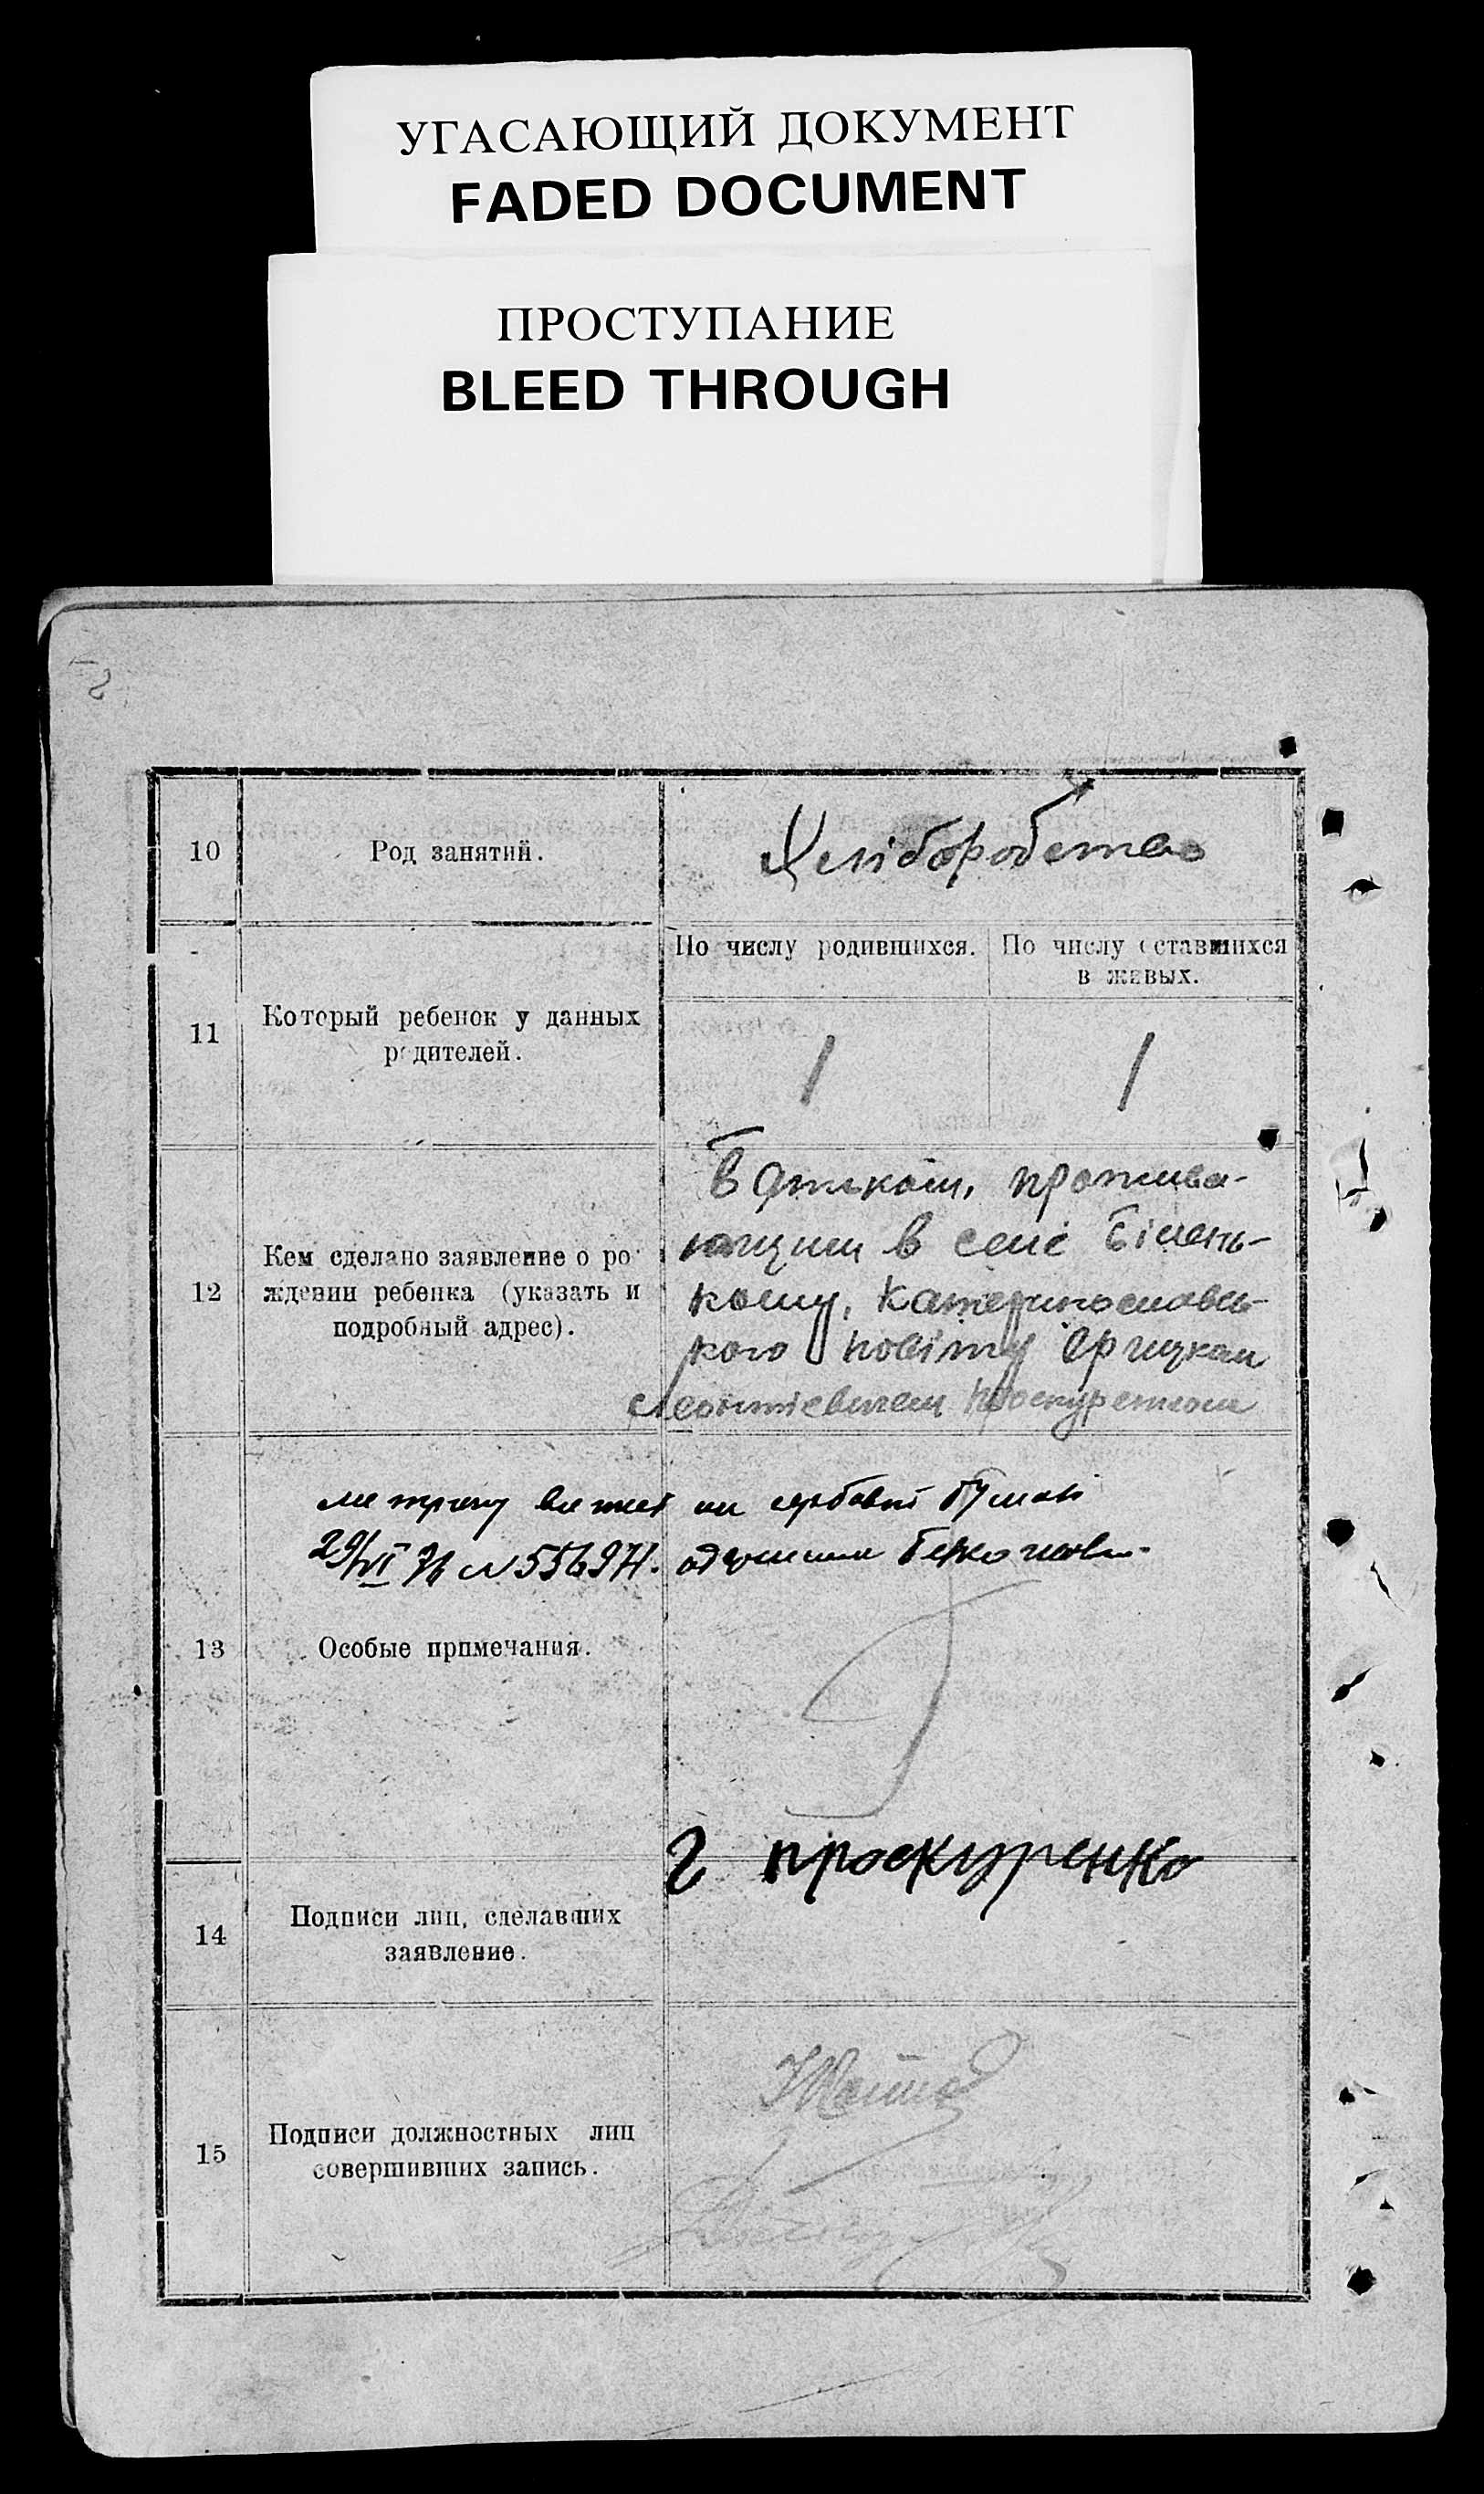 УГАСАЮЩИЙ ДОКУМЕНТ
FADED DOCUMENT
ПРОСТУПАНИЕ
BLEED THROUGH
10
Род занятий.
Хліборобство
11
Который ребенок у данных
родителей.
По числу родившихся.
По числу оставшихся
в живых.
1
1
12
Кем сделано заявление о ро
ждении ребенка (указать и
подробный адрес).
Батьком, прожива-
ющим в селі Білень-
кому, Катеринославсь-
кого повіту Грицком
Леонтіевичем Проскуренком
29/VI 76 N 556974.
13
Особые примечания.
Г Проскуренко
14
Подписи лиц, сделавших
заявление.
15
Подписи должностных лиц
совершивших запись.